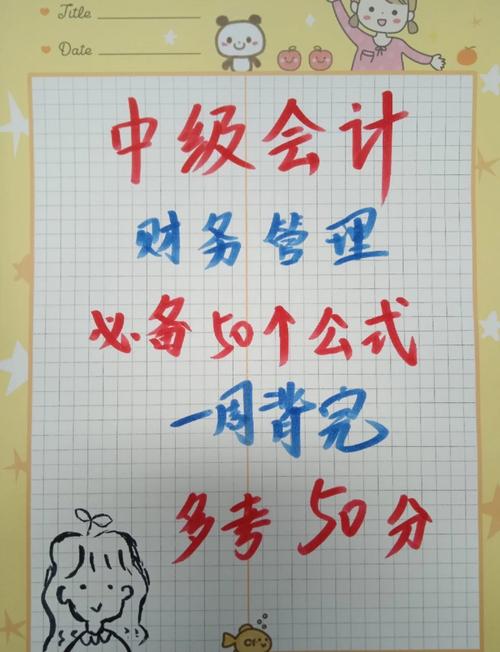 Title
Date
中级会计
财务管理
必备50个公式
一周背完
多考50分